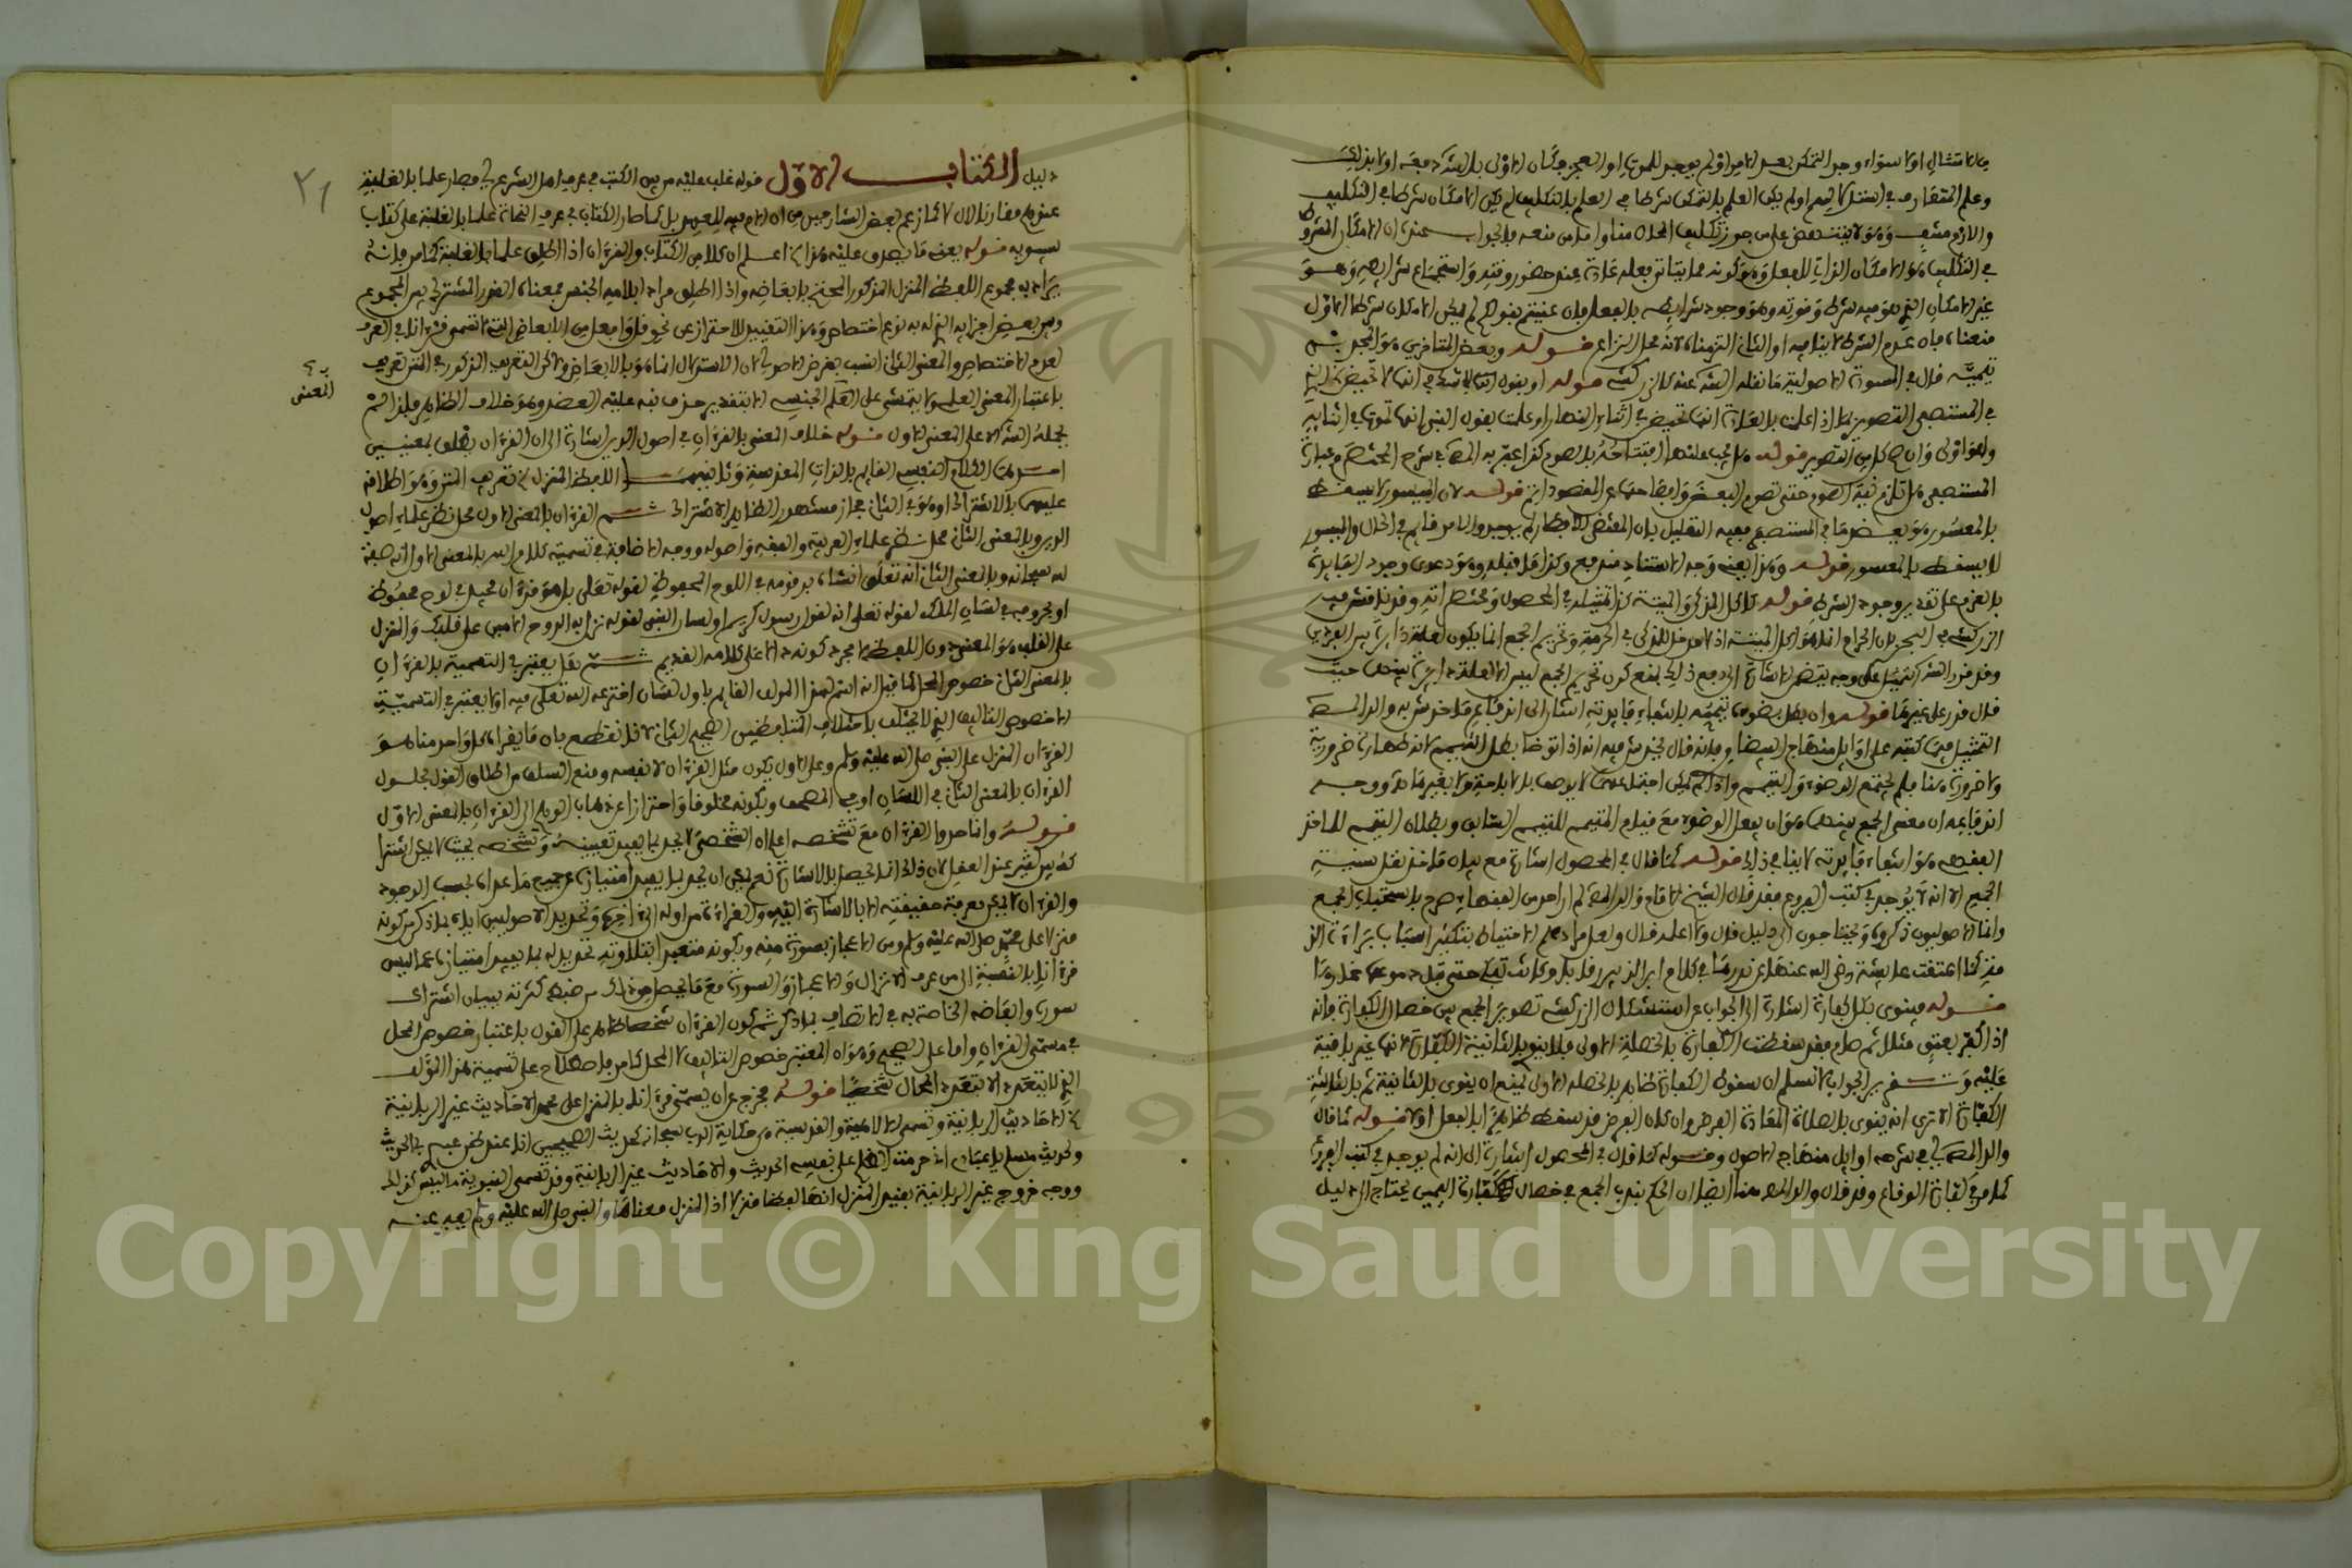 من الامتثال اولا سواء وجد التمكن بعد الامر اولم يوجد للموت او العجز وكان الاولى بالش
وعلم المتعارف في اولم يكن العلم بالتمكن شرطا في العلم بالتكليف لم يكن الامكان شرطا في التكليف
واللازم منتف وهو لا ينتهض على من جوز تكليف المحال منا واما من منعه فالجواب عنده ان الامكان المشروط
في التكليف هو الامكان الذاتي للفعل وهو كونه مما يتاتى فعله عادة عند حضور وقته واستجماع شرايطه وهو
غير الامكان الذي هو فيه شرط وقوعه وهو وجود شرايطه بالفعل فان عنيتم بقولكم لم يكن الامكان شرطا الاول
منعناه فان عدم الشرط لا ينافيه او الثاني التزمناه لانه محل النزاع قوله وبعض المتاخرين هو المجد بن
تيمية قال في المسودة الاصولية ما نقله الش عنه كالزركشي قوله
في المستصفى التصوير بما اذا علمت بالعادة انها تحيض في اثناء النهار او علمت بقول النبي انها تموت في اثنايه
المستصفى هل تلزم نية الصوم حتى تصوم البعض قوله لان الميسور لا يسقط
بالمعسور هو بعض ما في المستصفى
لا يسقط بالمعسور قوله وهذا يعني وجه الاستناد مندفع وكذا ما قبله وهو دعوى وجود الفايدة
بالعزم على تقدير وجود الشرط قوله كاكل المذكى والميتة كذا تمثيله في المحصول ومختصراته وقد ناقش فيه
الزركشي في البحر بان الحرام انما هو اكل الميتة اذ لا مدخل للمذكى في الحرمة وتحريم الجمع انما يكون لعلة دايرة بين الفردين
وقد قرر الش التمثيل على وجه يتضمن الاشارة الى دفع ذلك بمنع كون تحريم الجمع ليس الا لعلة دايرة بينهما حيث
قال قدر على غيرها قوله وان بطل بوضوءه تيممه بانتفاء فايدته اشار الى اندفاع ما خدش به والد المص
التمثيل فيما كتبه على اوايل منهاج البيضاوي فانه قال يخدش فيه انه اذا توضا بطل التيمم لانه طهارة ضرورية
ولا ضرورة هنا فلم يجتمع الوضوء والتيمم
اندفاعه ان معنى الجمع بينهما هو ان يفعل الوضوء مع قيام المتيمم للتيمم السابق وبطلان التيمم الماخذ
الفقهي هو انتفاء فايدته لا ينافي ذلك قوله كما قال في المحصول اشارة مع بيان ماخذ نقل سنية
الجمع الا انه لا يوجد في كتب الفروع فقد قال الشيخ الامام والد المص لم ار احدا من الفقهاء صرح باستحباب الجمع
وانما الاصوليون ذكروه ويحتاجون الى دليل قال ولا اعلمه قال ولعل مرادهم الاحتياط بتكثير اسباب براءة الذمة
كما اعتقت عايشة رضي الله عنها عن نذرها في كلام ابن الزبير رقابا وكانت تبكي حتى تبل دموعها خمارها
قوله فينوى بكل الكفارة اشارة الى الجواب عن استشكال الزركشي تصوير الجمع بين خصال الكفارة فانه
اذا كفر بعتق مثلا ثم صام فقد سقطت الكفارة بالخصلة الاولى فلا ينوي بالثانية الكفارة لانها غير باقية
عليه وتقرير الجواب لا نسلم ان سقوط الكفارة ظاهرا بالخصلة الاولى يمنع ان ينوى بالثانية ثم بالثالثة
الكفارة الا ترى انه ينوى بالصلاة المعادة الفرض وان كان الفرض قد سقط ظاهرا بالفعل اولا قوله كما قال
والد المص في شرحه اوايل منهاج الاصول وقوله كما قال في المحصول اشارة الى انه لم يوجد في كتب الفروع
كما مر في كفارة الوقاع وقد قال والد المص هنا ايضا ان الحكم بندب الجمع في خصال كفارة اليمين يحتاج الى دليل
٢١
دليل الكتاب الاول قوله غلب عليه من بين الكتب في عرف اهل الشرع اي فصار علما بالغلبة
عندهم مقارنا لال لا كما زعم بعض الشارحين من ان ال فيه للعهد بل كما صار الكتاب في عرف النحاة علما بالغلبة على كتاب
سيبويه قوله يعني ما يصدق عليه هذا اعلم ان كلا من الكتاب والقران اذا اطلق علما بالغلبة كما مر فانه
يراد به مجموع اللفظ المنزل المذكور المحتج بابعاضه واذا اطلق مرادا بلامه الجنس فمعناه القدر المشترك بين المجموع
وبين بعض اجزايه الذي له به نوع اختصاص وهذا التقييد للاحتراز عن نحو قل وافعل من الابعاض التي لا تسمى قرانا في العرف
لعدم الاختصاص والمعنى الثاني انسب بغرض الاصولي لان الاستدلال انما هو بالابعاض ولاكن التعريف المذكور في المتن تعريف
باعتبار المعنى العلمي ولا يتمشى على العلم الجنسي الا بتقدير حذف نبه عليه العضد وهو خلاف الظاهر فلذا لم
المعنى
يحمله الش الا على المعنى الاول قوله خلاف المعنى بالقران في اصول الدين اشارة الى ان القران يطلق لمعنيين
احدهما الكلام النفسي القايم بالذات المقدسة وثانيهما اللفظ المنزل
عليهما بالاشتراك او هو في الثاني مجاز مشهور الظاهر الاشتراك ثم القران بالمعنى الاول محل نظر علماء اصول
الدين وبالمعنى الثاني محل نظر علماء العربية والفقه واصوله ووجه الاضافة في تسميته كلام الله بالمعنى الاول انه صفة
له سبحانه وبالمعنى الثاني انه تعالى انشاه برقومه في اللوح المحفوظ لقوله تعالى بل هو قران مجيد في لوح محفوظ
او بحروفه في لسان الملك لقوله تعالى انه لقول رسول كريم او لسان النبي لقوله نزل به الروح الامين على قلبك والمنزل
على القلب هو المعنى دون اللفظ لا مجرد كونه دالا على كلامه القديم ثم هل يعتبر في التسمية بالقران
بالمعنى الثاني خصوص المحل كما قيل انه اسم لهذا المولف القايم باول لسان اخترعه الله تعالى فيه او لا يعتبر في التسمية
الا خصوص التاليف الذي لا يختلف باختلاف المتلفظين الصحيح الثاني لانا نقطع بان ما يقراه كل واحد منا هو
القران المنزل على النبي صلى الله عليه وسلم وعلى الاول يكون مثل القران لا نفسه ومنع السلف من اطلاق القول بحلول
القران بالمعنى الثاني في اللسان او في المصحف وبكونه مخلوقا احترازا عن ذهاب الوهم الى القران بالمعنى الاول
قوله وانما حدوا القران مع تشخصه اعلم ان الشخصي لا يحد بما يفيد تعيينه وتشخصه بحيث لا يمكن اشترا
كه بين كثيرين عند العقل لان ذلك انما يحصل بالاشارة نعم يمكن ان يحد بما يفيد امتيازه عن جميع ما عداه بحسب الوجود
والقران لا يمكن معرفة حقيقته الا بالاشارة اليه والقراءة من اوله الى اخره وتحديد الاصوليين اياه بما ذكر من كونه
منزلا على محمد صلى الله عليه وسلم ومن الاعجاز بسورة منه وبكونه متعبدا بتلاوته تحديد له بما يفيد امتيازه عما ليس
قرانا بالنسبة الى من عرف الانزال والاعجاز والسورة مع ما يحصل من ذلك من ضبط كثرته ببيان اشتراك
سوره وابعاضه الخاصة به في الاتصاف بما ذكر ثم كون القران شخصا ظاهر على القول باعتبار خصوص المحل
في مسمى القران واما على الصحيح وهو ان المعتبر خصوص التاليف لا المحل كما مر فاصطلاح على تسمية هذا المؤلف
الذي لا يتعدد الا بتعدد المحال شخصا قوله مخرج عن ان يسمى قرانا بالمنزل على محمد الاحاديث غير الربانية
الاحاديث الربانية وتسمى الالهية والقدسية هي حكاية الرب سبحانه كحديث الصحيحين انا عند ظن عبدي بي الحديث
وحديث مسلم يا عبادي اني حرمت الظلم على نفسي الحديث والاحاديث غير الربانية وقد تسمى النبوية ما ليس كذلك
ووجه خروج غير الربانية بقيد المنزل انها لفظا منزلا اذ المنزل معناها والنبي صلى الله عليه وسلم يعبر عنه
Copyright © King Saud University
1957